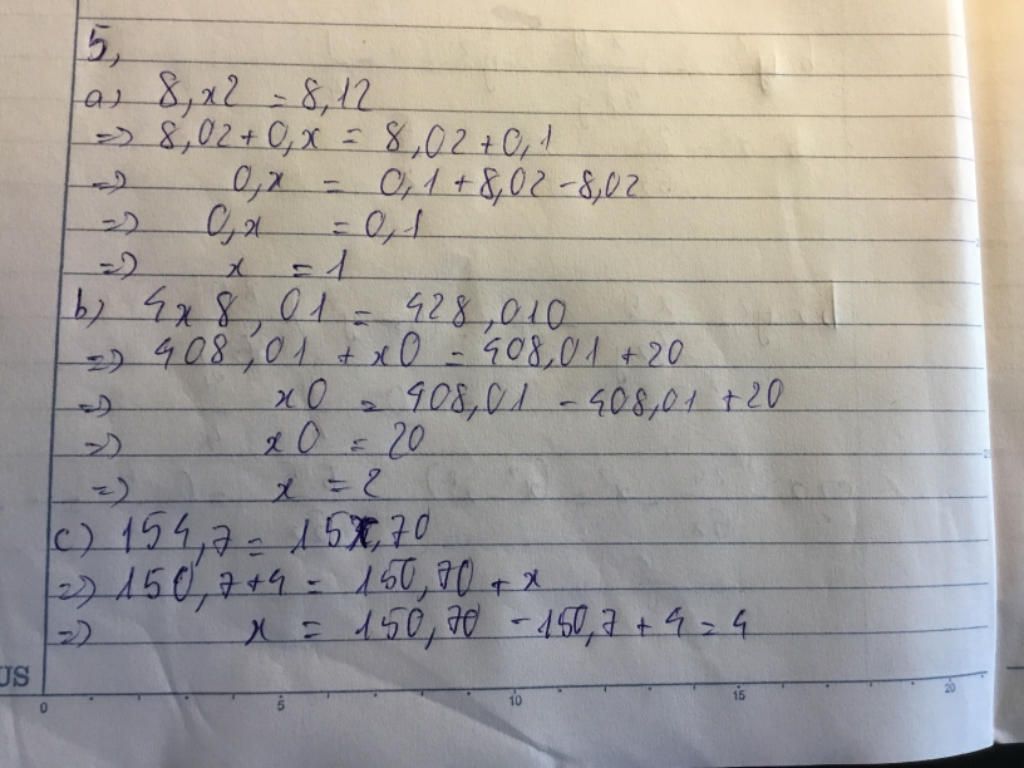 5,
a) 8,x2 = 8,12
=> 8,02+0,x = 8,02+0,1
=> 0,x = 0,1+8,02-8,02
=> 0,x = 0,1
=> x = 1
b) 4x8,01 = 428,010
=> 408,01 + x0 = 408,01 +20
=> x0 = 408,01 - 408,01 +20
=> x0 = 20
=> x = 2
c) 154,7 = 15x,70
=> 150,7+4 = 150,70 + x
=> x = 150,70 - 150,7 + 4 = 4
US
0 5 10 15 20